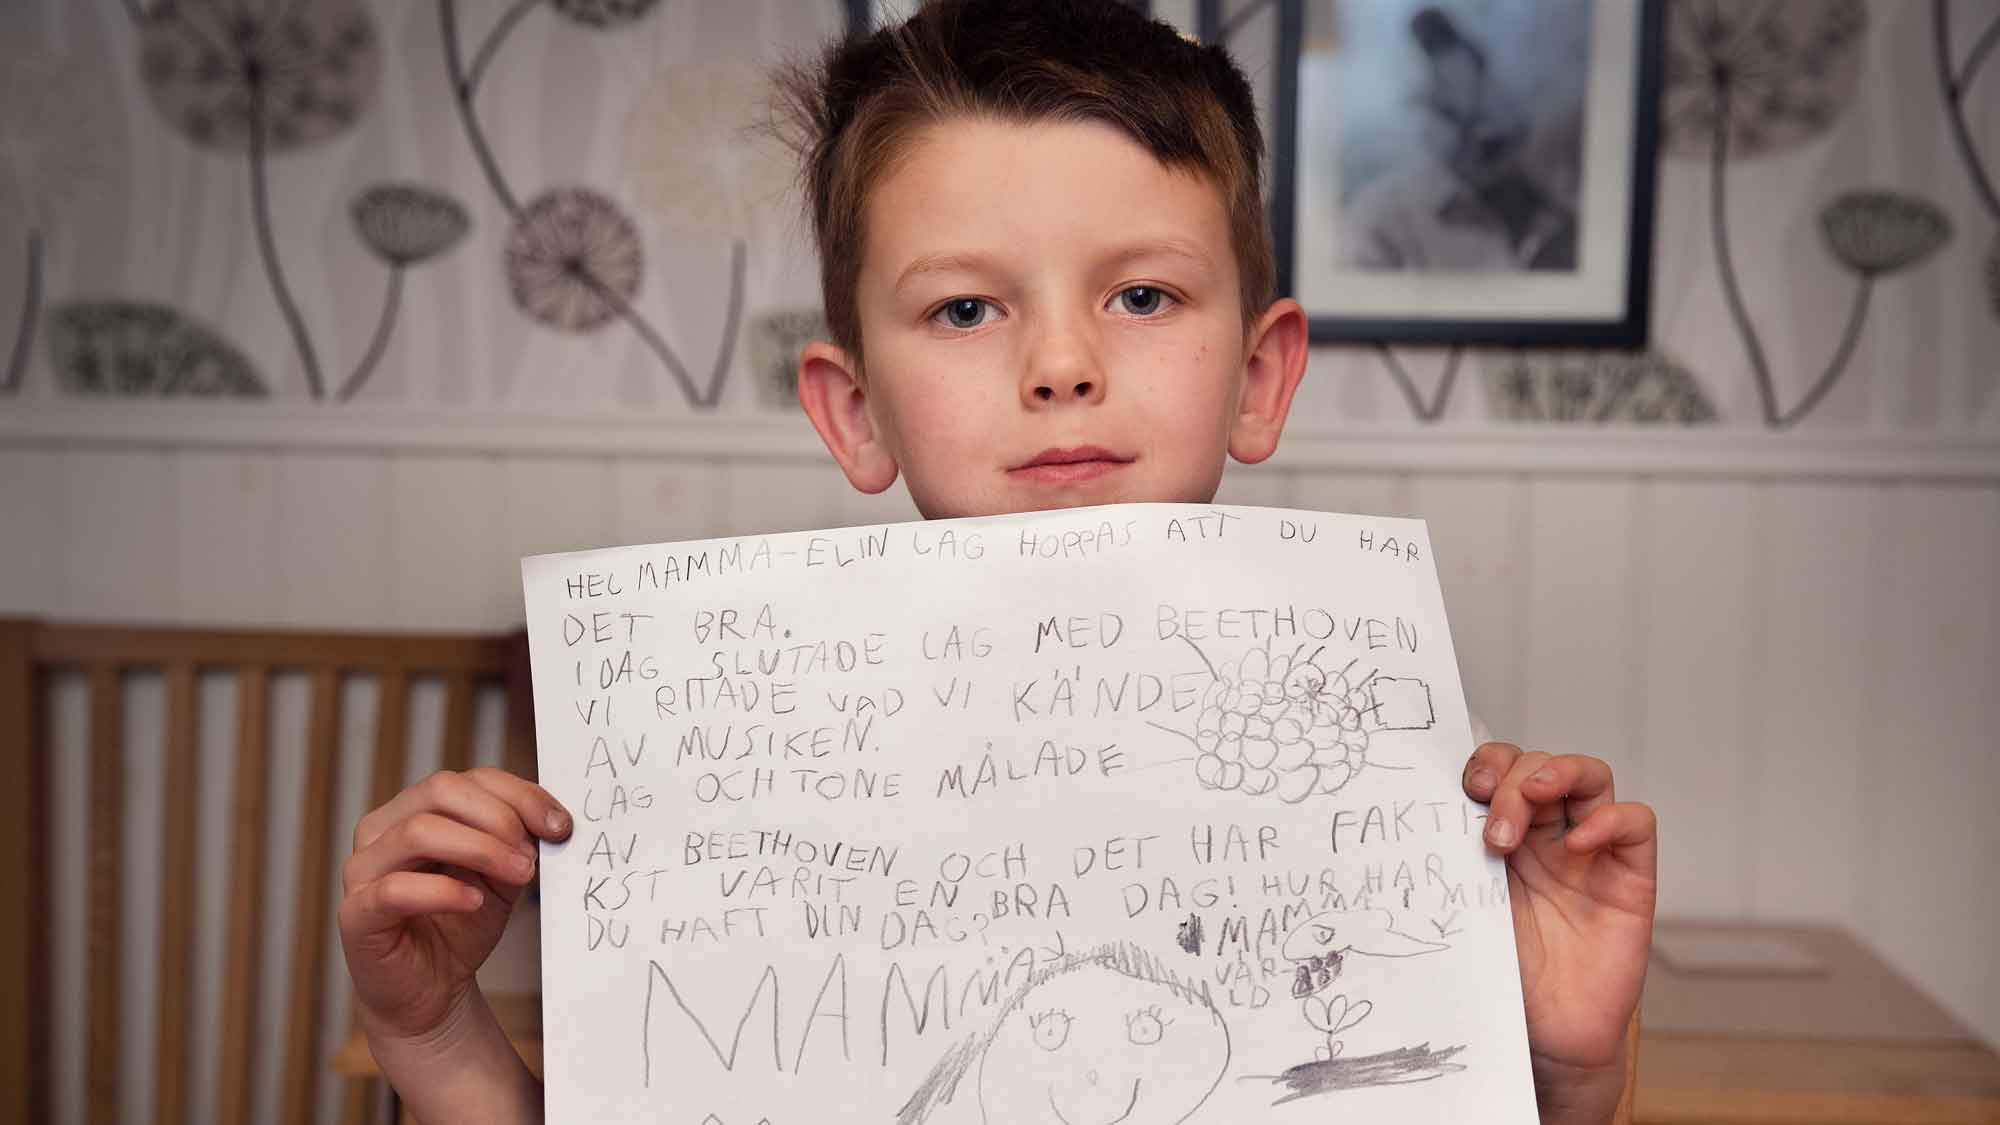 HEL MAMMA-ELIN LAG HOPPAS ATT DU HAR
DET BRA.
I DAG SLUTADE LAG MED BEETHOVEN
VI RITADE VAD VI KÄNDE
AV MUSIKEN.
LAG OCH TONE MÅLADE
AV BEETHOVEN OCH DET HAR FAKTI-
KST VARIT EN BRA DAG! HUR HAR
DU HAFT DIN DAG?
MAMMA I MIN
VÄR-
LD
MAMMA